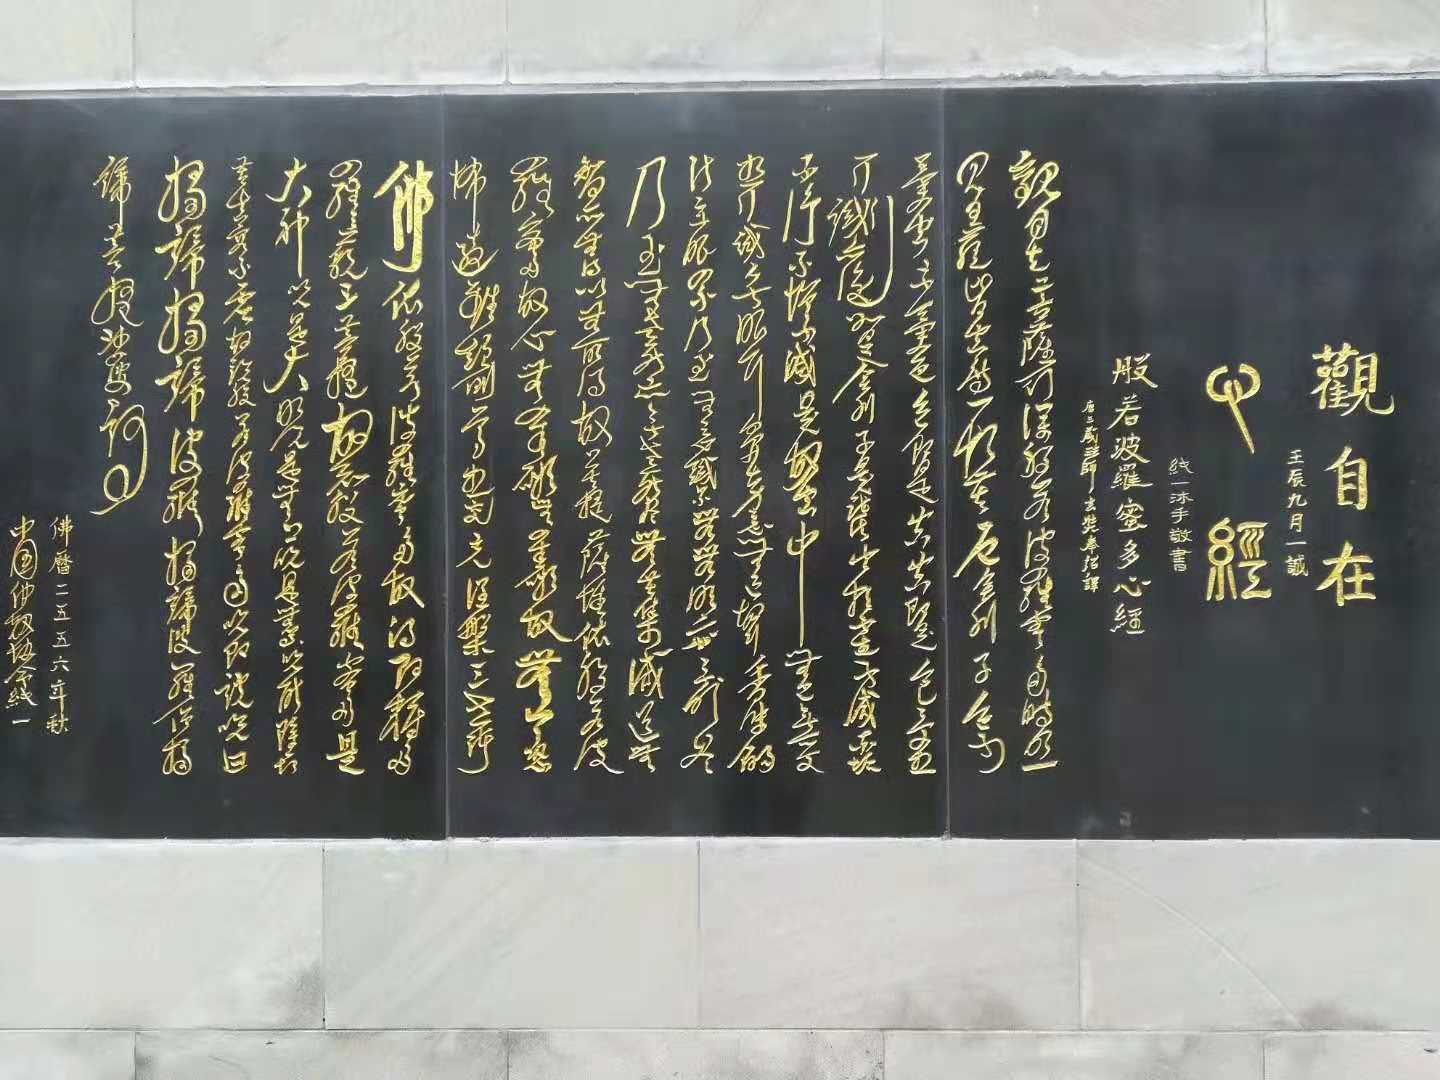 觀自在
壬辰九月一誠
心經
线一沐手敬書
般若波羅蜜多心經
唐三藏法師玄奘奉詔譯
觀自在菩薩行深般若波羅蜜多時照
見五蘊皆空度一切苦厄舍利子色不
異空空不異色色即是空空即是色受想
行識亦復如是舍利子是諸法空相不生不滅不垢
不淨不增不減是故空中無色無受
想行識無眼耳鼻舌身意無色聲香味觸
法無眼界乃至無意識界無無明亦無無明盡
乃至無老死亦無老死盡無苦集滅道無
智亦無得以無所得故菩提薩埵依般若波
羅蜜多故心無罣礙無罣礙故無有恐
怖遠離顛倒夢想究竟涅槃三世諸
佛依般若波羅蜜多故得阿耨多
羅三藐三菩提故知般若波羅蜜多是
大神咒是大明咒是無上咒是無等等咒能除一切
苦真實不虛故說般若波羅蜜多咒即說咒曰
揭諦揭諦波羅揭諦波羅僧揭
諦菩提娑婆訶
佛曆二五五六年秋
中國线一